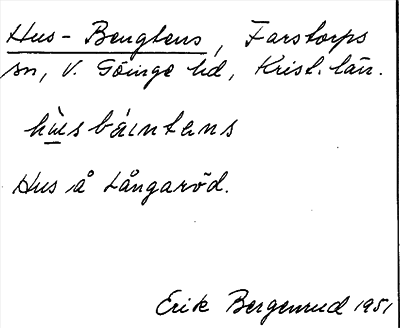 Hus-Bengtens, Farstorps
sn, V. Göinge hd, Krist. län.
hùsbáintens
Hus å Långaröd.
Erik Bergenrud 1951